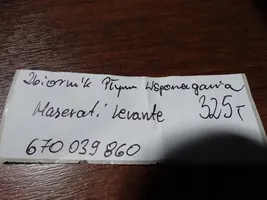 Zbiornik Płynu Wspomagania
Maserati Levante 325T
670 039 860